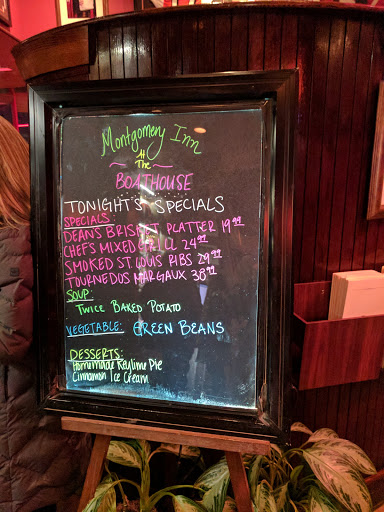 Montgomery Inn
At
The
BOATHOUSE
TONIGHT'S SPECIALS
SPECIALS:
DEAN'S BRISKET PLATTER 19.99
CHEF'S MIXED GRILL 24.99
SMOKED ST. LOUIS RIBS 29.99
TOURNEDOS MARGAUX 38.99
SOUP:
TWICE BAKED POTATO
VEGETABLE: GREEN BEANS
DESSERTS:
Homemade Keylime Pie
Cinnamon Ice Cream